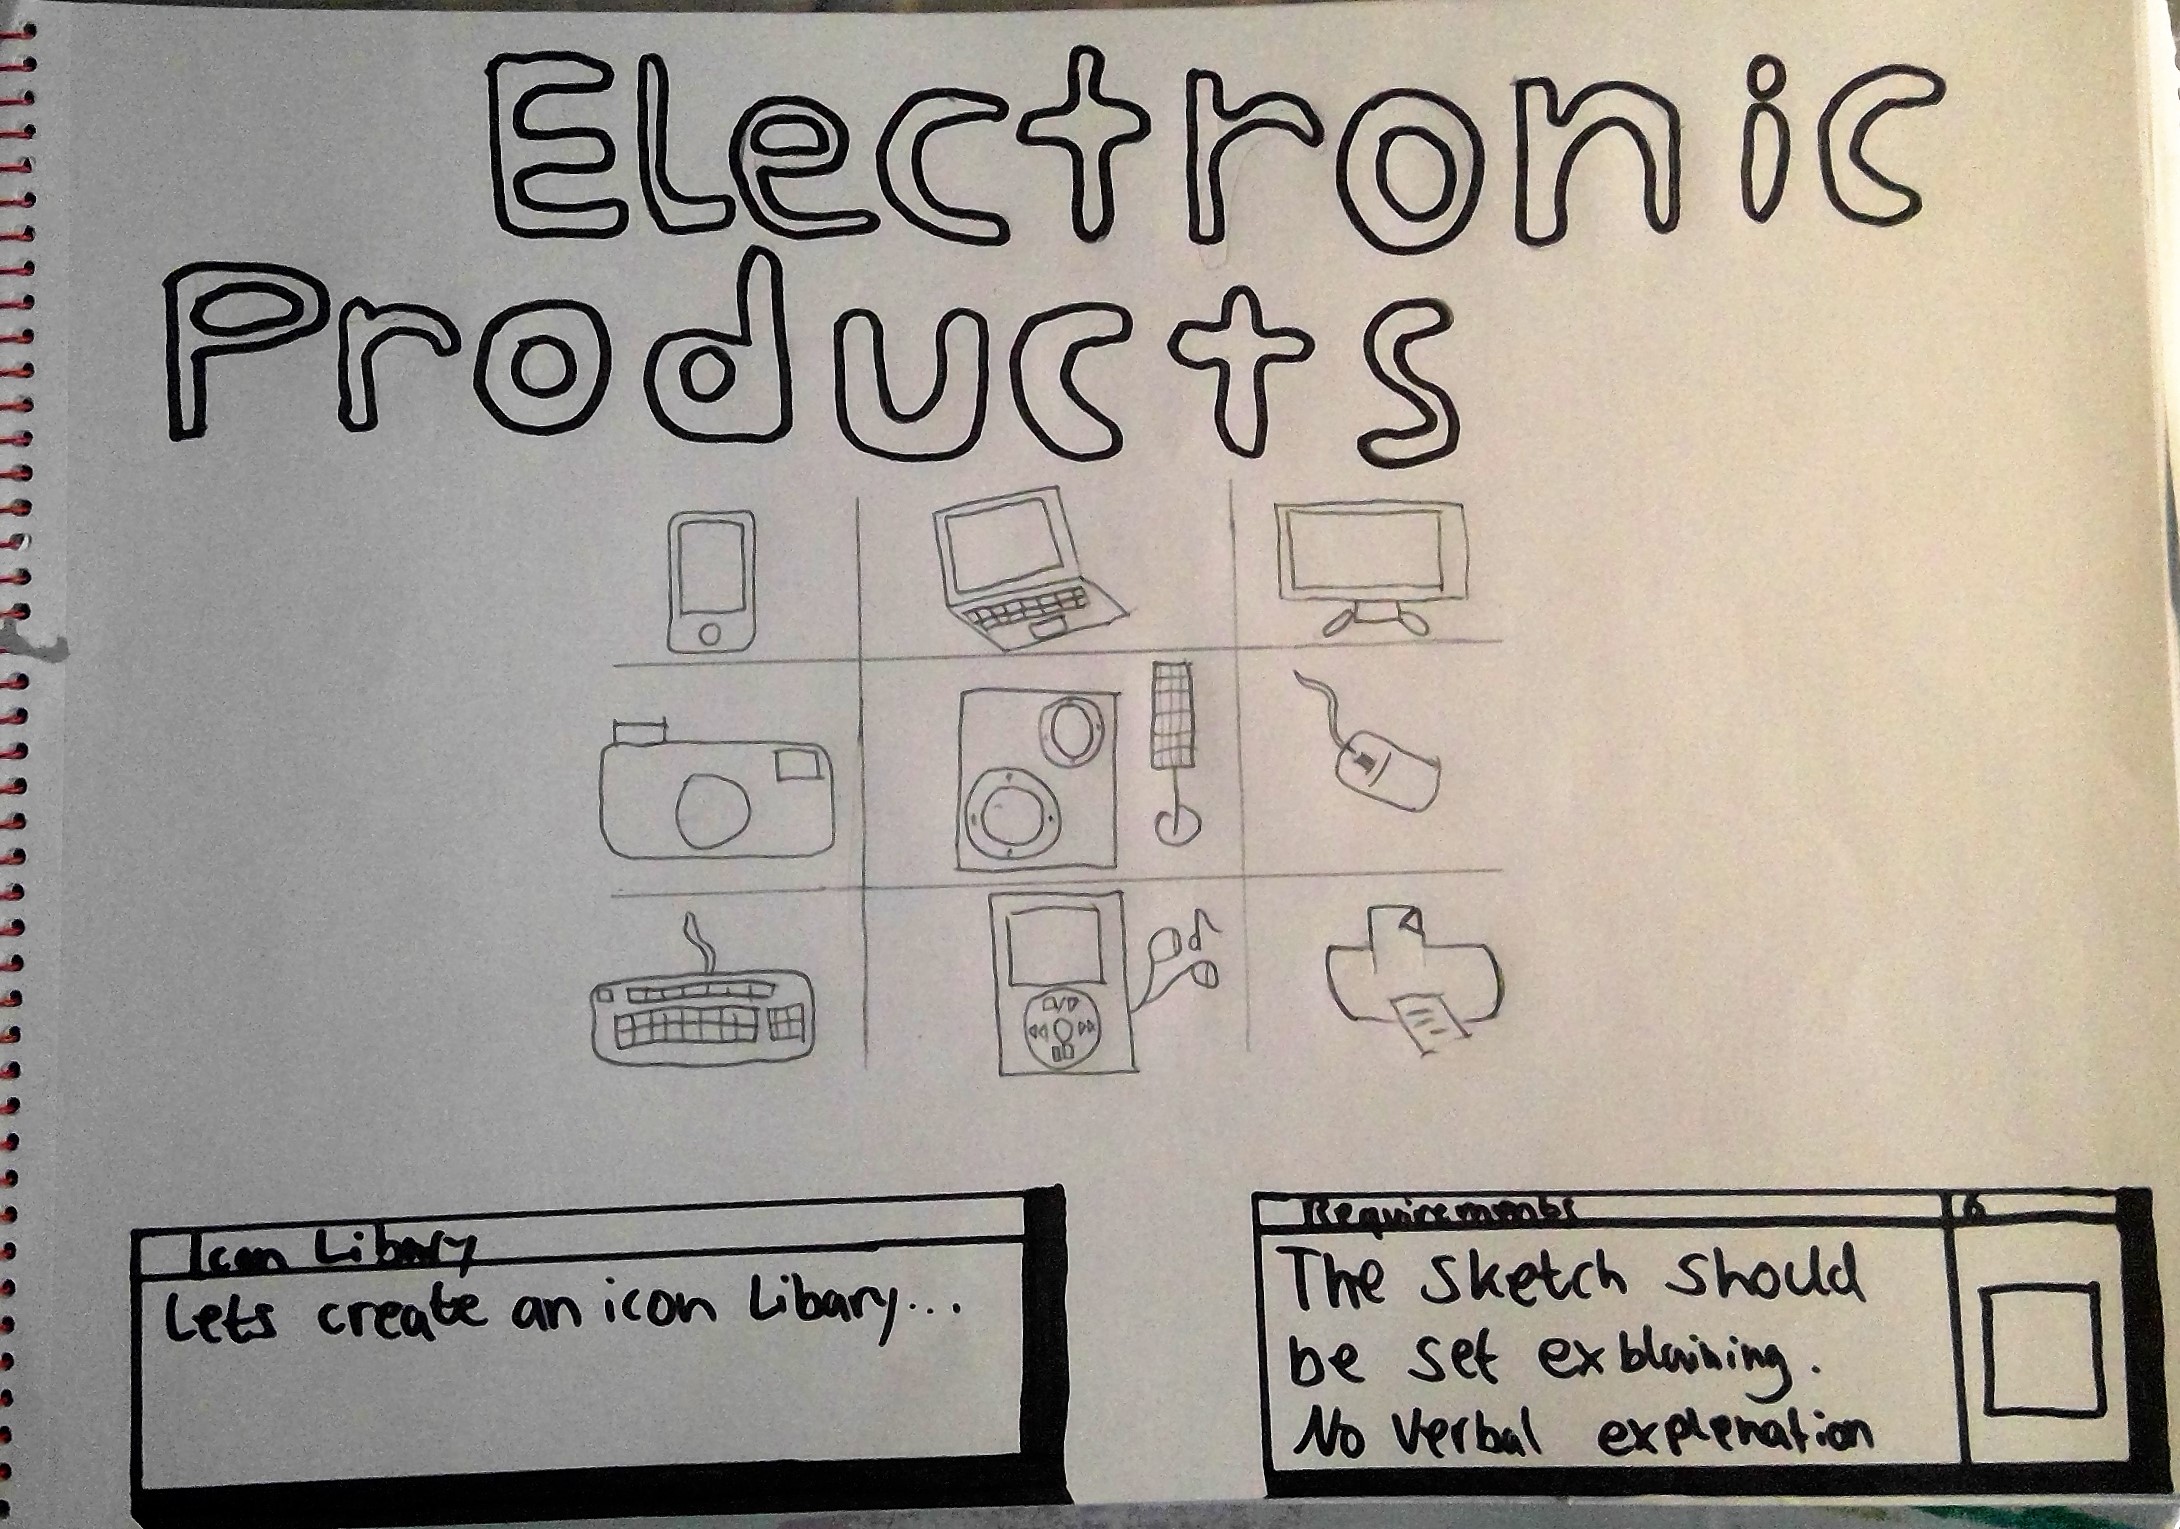 Electronic
Products
Icon Libary
Lets create an icon Libary...
Requirements
6
The sketch should
be set explaining.
No verbal explenation